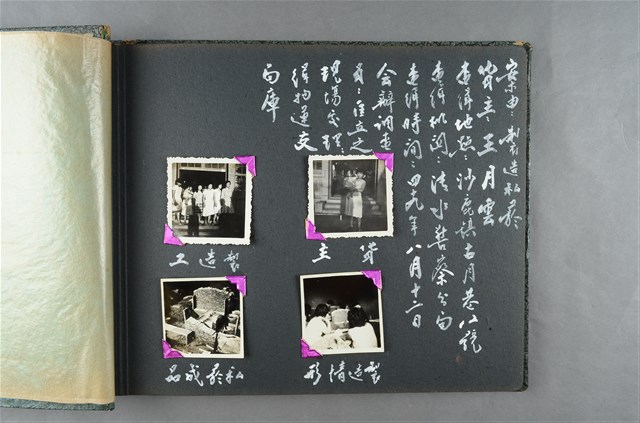 案由：製造私菸
貨主王月雲
查緝地點：沙鹿鎮古月巷八號
查緝機関：清水警察分局
查緝時間：四九年八月十二日
会辦調查
員：汪立之
現場處理：
緝物運交
局庫
製造工
貨主
私菸成品
製造情形